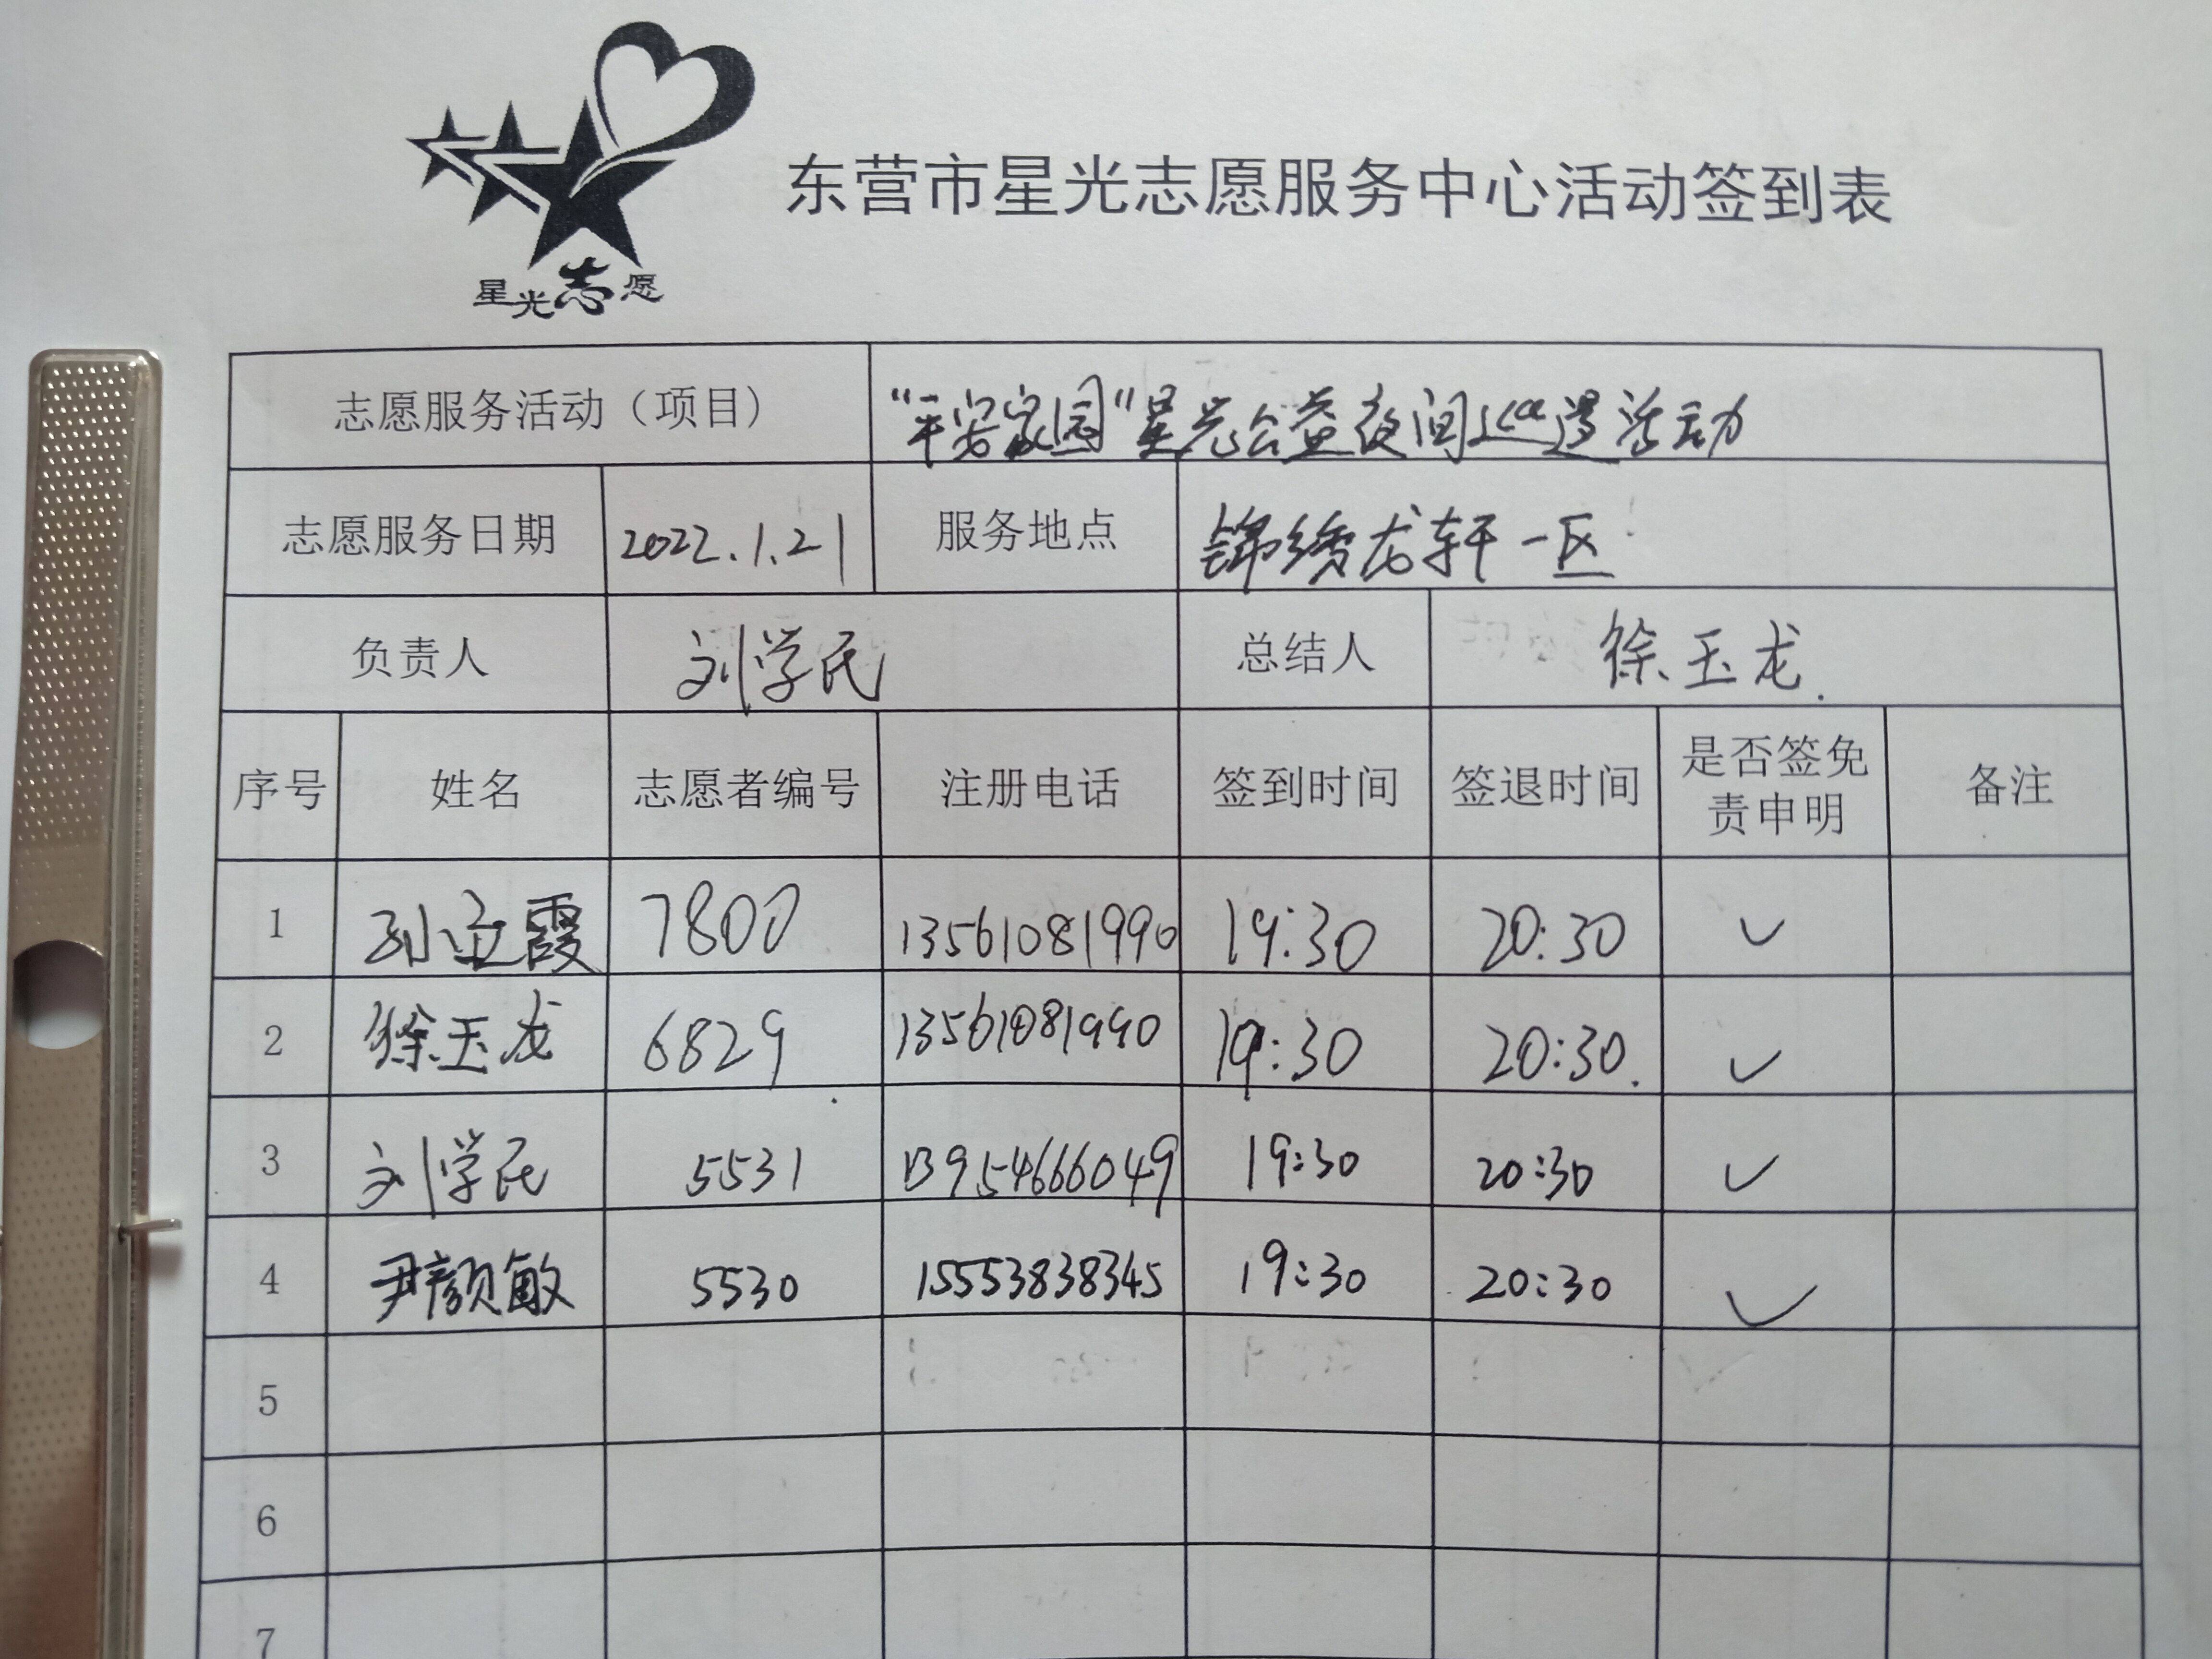 东营市星光志愿服务中心活动签到表
星光志愿
志愿服务活动（项目） "平安家园"星光公益夜间巡逻活动
志愿服务日期 2022.1.21 服务地点 锦绣龙轩一区
负责人 刘学民 总结人 徐玉龙.
序号 姓名 志愿者编号 注册电话 签到时间 签退时间 是否签免责申明 备注
1 孙立霞 7800 13561081990 19:30 20:30 ✓
2 徐玉龙 6829 13561081990 19:30 20:30. ✓
3 刘学民 5531 13954666049 19:30 20:30 ✓
4 尹颜敏 5530 15553838345 19:30 20:30 ✓
5
6
7